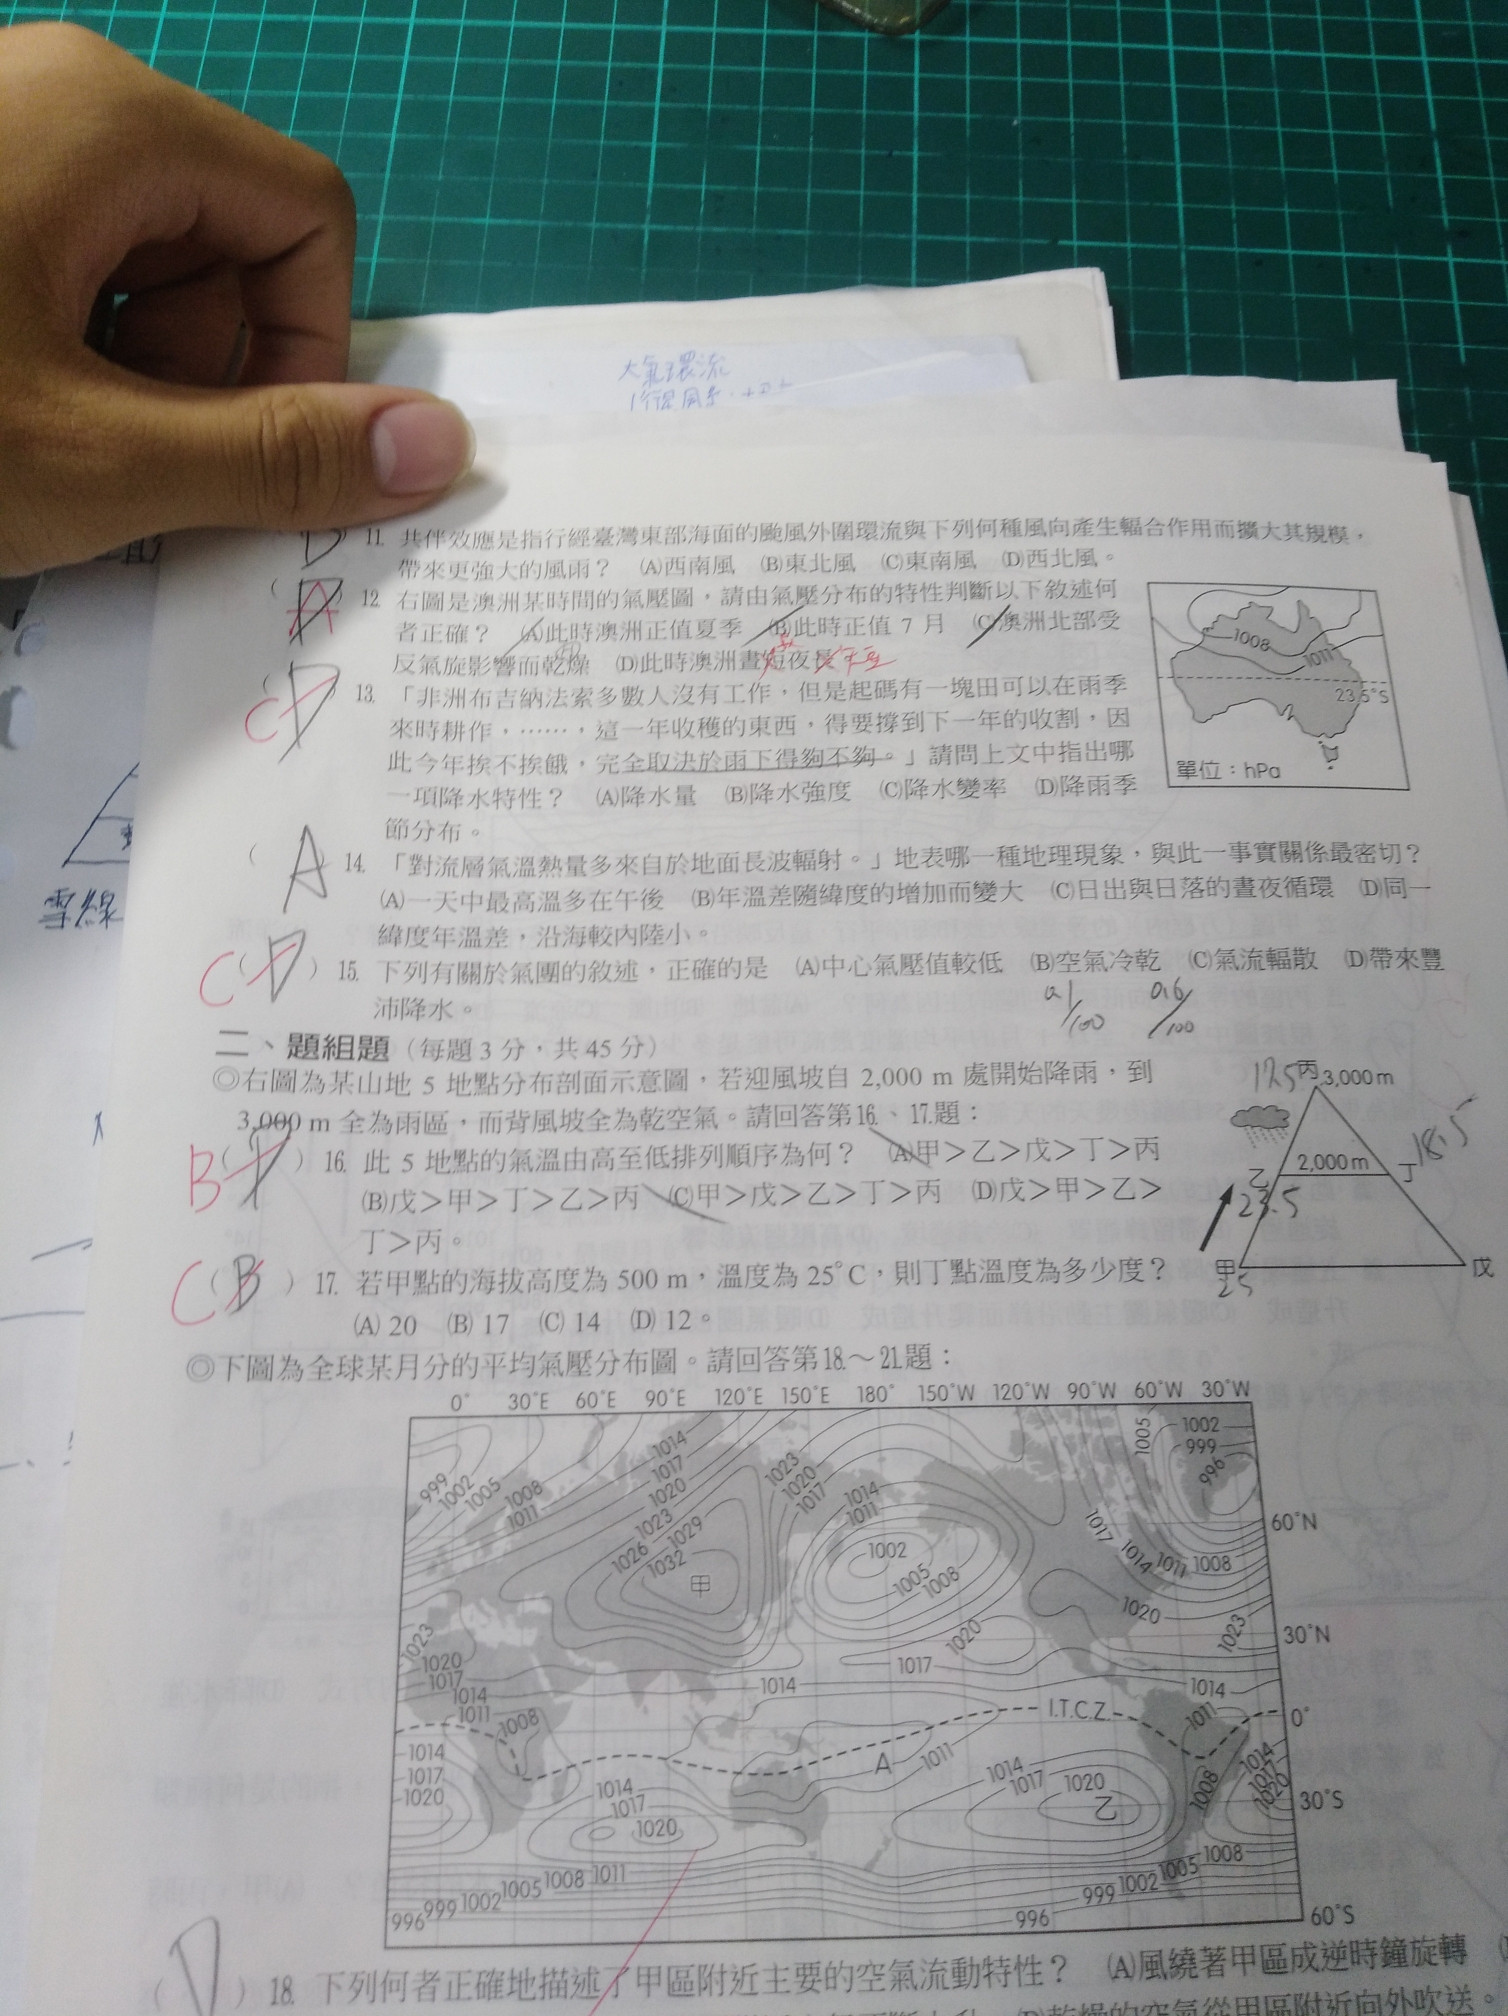 大氣環流
行星風系
雪線
D 11. 共伴效應是指行經臺灣東部海面的颱風外圍環流與下列何種風向產生輻合作用而擴大其規模，
帶來更強大的風雨？ (A)西南風 (B)東北風 (C)東南風 (D)西北風。
( A ) 12. 右圖是澳洲某時間的氣壓圖，請由氣壓分布的特性判斷以下敘述何
者正確？ (A)此時澳洲正值夏季 (B)此時正值 7 月 (C)澳洲北部受
反氣旋影響而乾燥 (D)此時澳洲晝短夜長
長 短
1008
1011
23.5°S
單位：hPa
( C D ) 13. 「非洲布吉納法索多數人沒有工作，但是起碼有一塊田可以在雨季
來時耕作，……，這一年收穫的東西，得要撐到下一年的收割，因
此今年挨不挨餓，完全取決於雨下得夠不夠。」請問上文中指出哪
一項降水特性？ (A)降水量 (B)降水強度 (C)降水變率 (D)降雨季
節分布。
( A ) 14. 「對流層氣溫熱量多來自於地面長波輻射。」地表哪一種地理現象，與此一事實關係最密切？
(A)一天中最高溫多在午後 (B)年溫差隨緯度的增加而變大 (C)日出與日落的晝夜循環 (D)同一
緯度年溫差，沿海較內陸小。
C ( D ) 15. 下列有關於氣團的敘述，正確的是 (A)中心氣壓值較低 (B)空氣冷乾 (C)氣流輻散 (D)帶來豐
沛降水。
0.1/100 0.6/100
二、題組題（每題 3 分，共 45 分）
◎右圖為某山地 5 地點分布剖面示意圖，若迎風坡自 2,000 m 處開始降雨，到
3,000 m 全為雨區，而背風坡全為乾空氣。請回答第16.、17.題：
B ( ) 16. 此 5 地點的氣溫由高至低排列順序為何？ (A)甲＞乙＞戊＞丁＞丙
(B)戊＞甲＞丁＞乙＞丙 (C)甲＞戊＞乙＞丁＞丙 (D)戊＞甲＞乙＞
丁＞丙。
17.5 丙 3,000 m
2,000 m
乙 23.5
丁 18.5
甲 25
戊
C ( B ) 17. 若甲點的海拔高度為 500 m，溫度為 25°C，則丁點溫度為多少度？
(A) 20 (B) 17 (C) 14 (D) 12。
◎下圖為全球某月分的平均氣壓分布圖。請回答第18.～21.題：
0° 30°E 60°E 90°E 120°E 150°E 180° 150°W 120°W 90°W 60°W 30°W
999 1002 1005 1008 1011
1014 1017 1020 1023 1026 1029 1032
甲
1023 1020 1017 1014 1011
1002 1005 1008
1005 1002 999 996
1017 1014 1011 1008
60°N
1020 1020 1023
30°N
1023 1020 1017 1014 1011 1008
1014 1017 1014
I.T.C.Z.
1011
0°
1014 1017 1020
1014 1017 1020
A 1011
1014 1017 1020
乙
1008
1014 1017 1020
30°S
996 999 1002 1005 1008 1011
996 999 1002 1005 1008
60°S
( D ) 18. 下列何者正確地描述了甲區附近主要的空氣流動特性？ (A)風繞著甲區成逆時鐘旋轉
乾燥的空氣從甲區附近向外吹送。